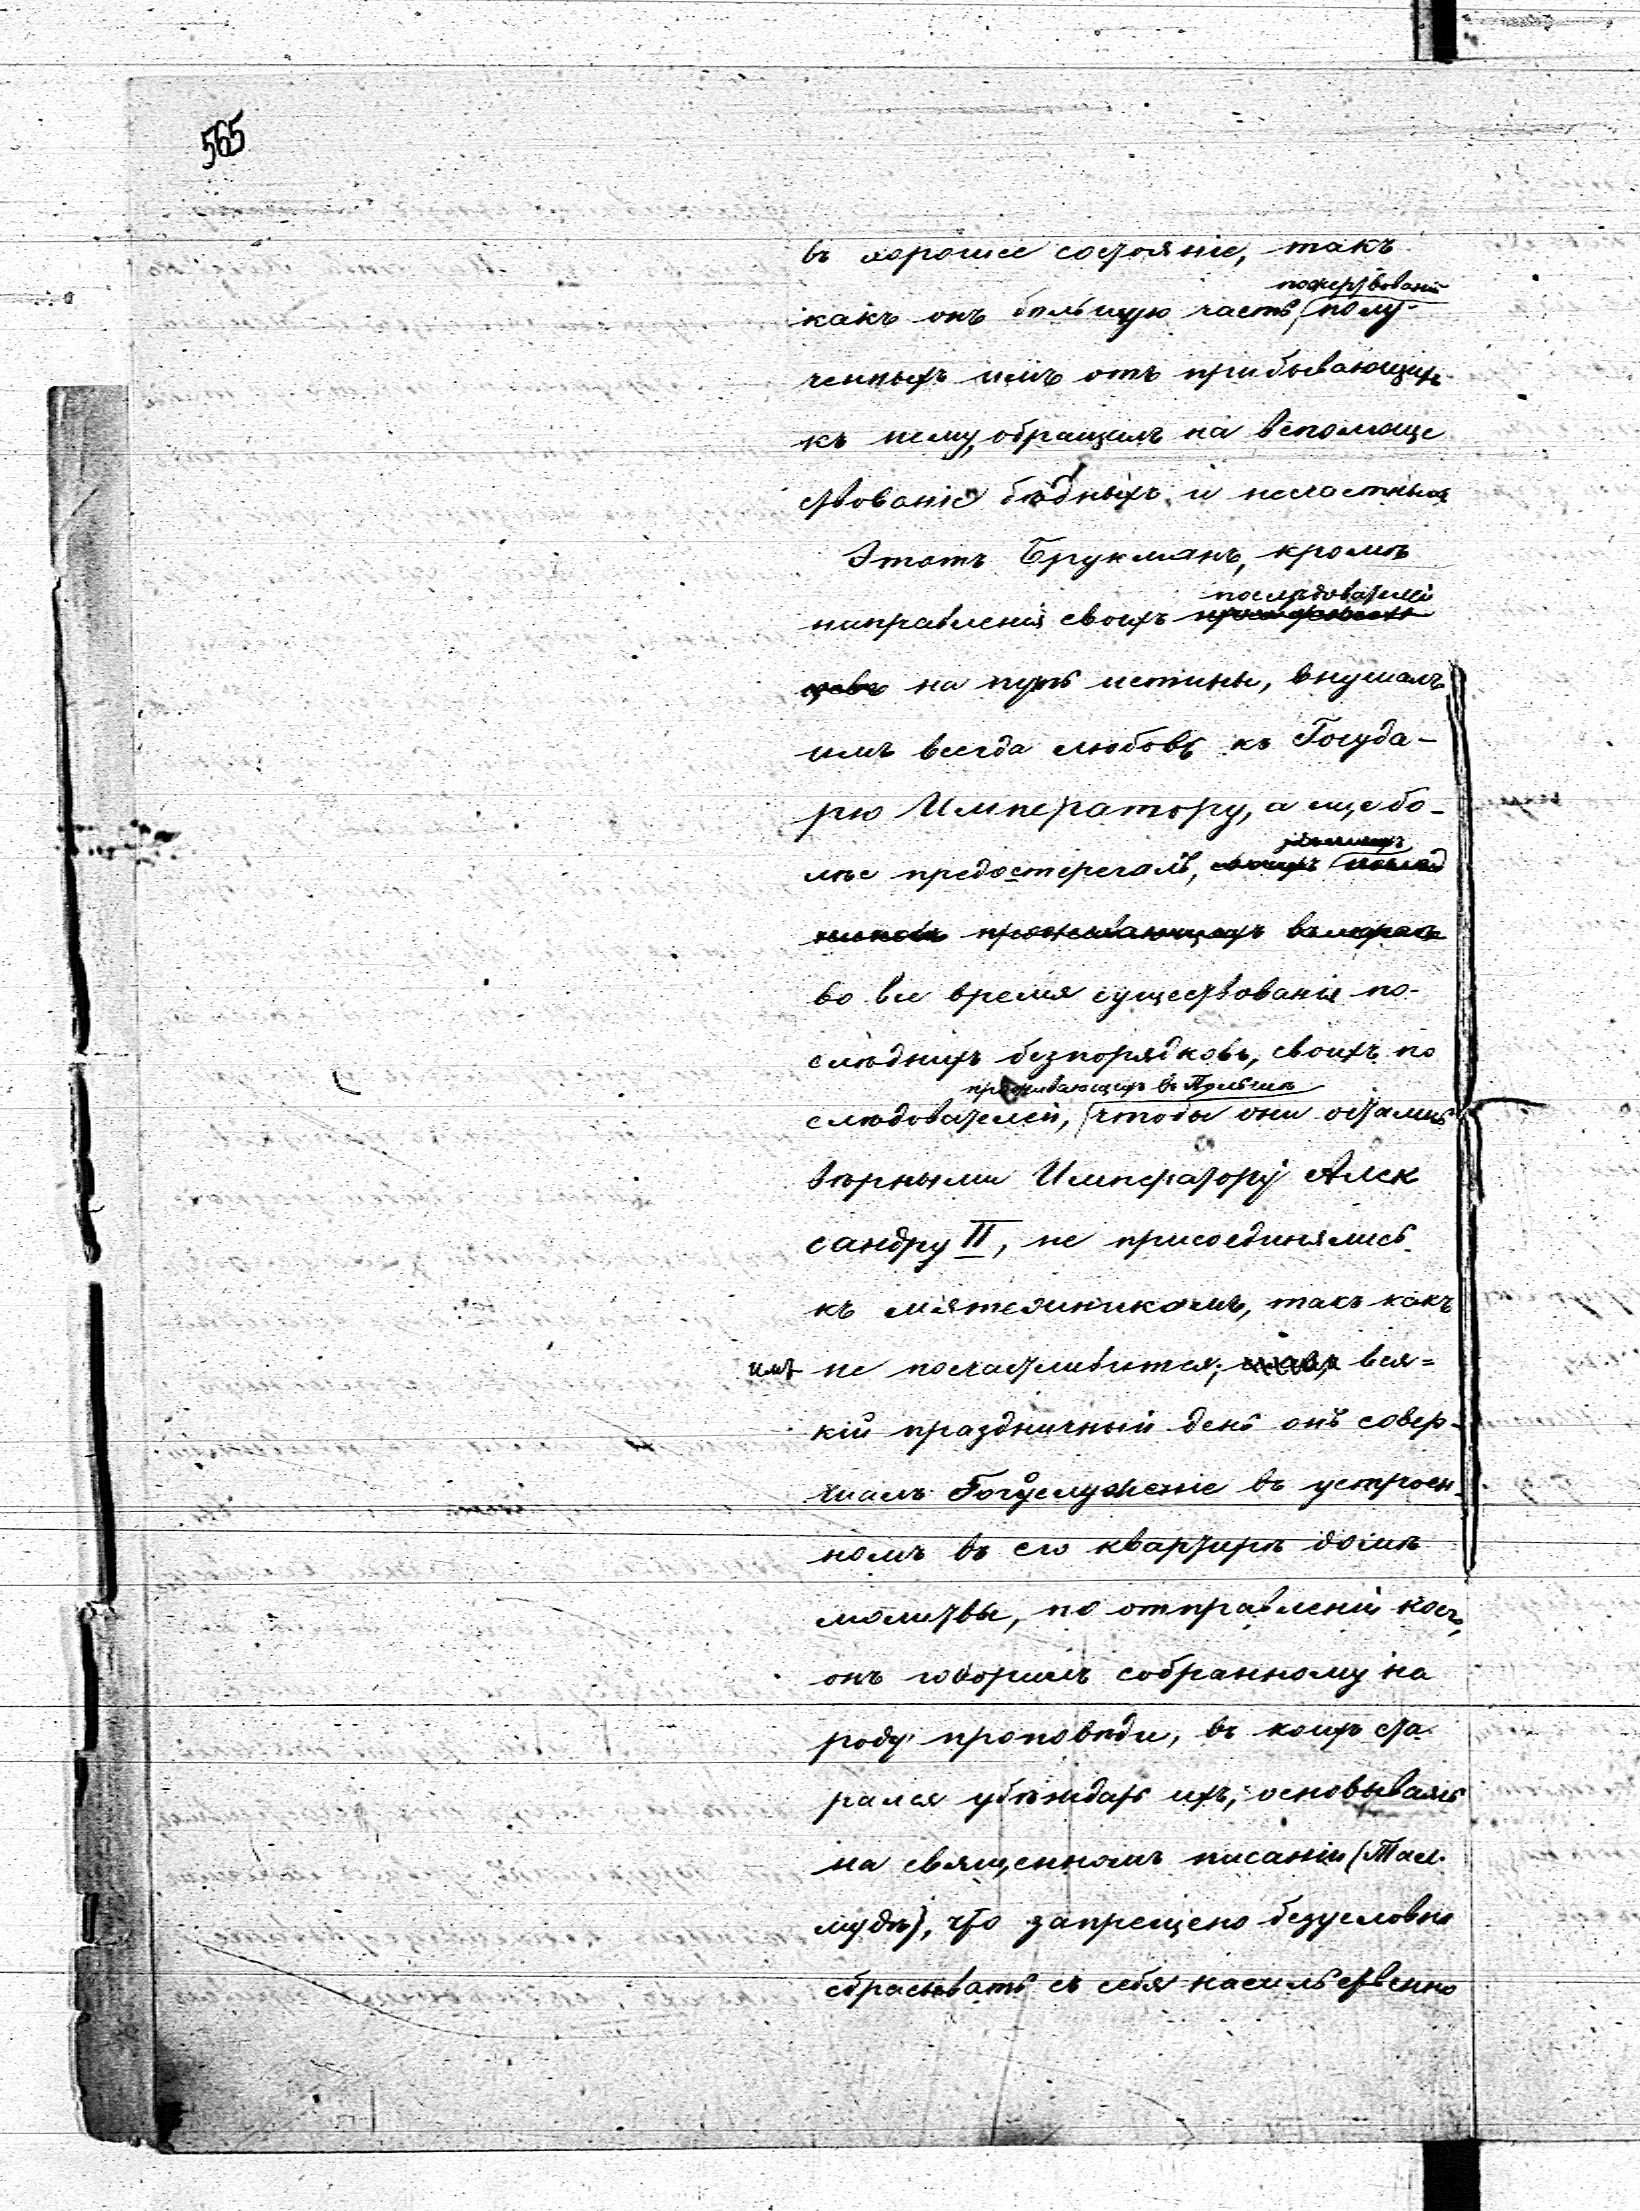 565
въ хорошее состояніе, такъ
пожертвованій
какъ онъ большую часть, полу-
ченныхъ имъ отъ прибывающихъ
къ нему, обращалъ на вспомоще
ствованіе бѣдныхъ и несчастныхъ
Этотъ Брукманъ, кромѣ
послѣдователей
направленія своихъ
на путь истины, внушалъ
имъ всегда любовь къ Госуда-
рю Императору, а еще бо-
лѣе предостерегалъ, своихъ
проживающихъ
во все время существованія по-
слѣднихъ безпорядковъ, своихъ по
проживающихъ въ Польшѣ
слѣдователей, чтобы они остались
вѣрными Императору Алек
сандру II, не присоединялись
къ мятежникамъ, такъ какъ
имъ не посчастливится; вся=
кій праздничный день онъ совер-
шалъ Богуслуженіе въ устроен-
номъ въ его квартирѣ домѣ
молитвы, по отправленіи коего,
онъ говорилъ собранному на
роду проповѣди, въ коихъ ста-
рался убѣждать ихъ, основываясь
на священномъ писаніи (Тал-
мудѣ), что запрещено безусловно
сбрасывать съ себя насильственно